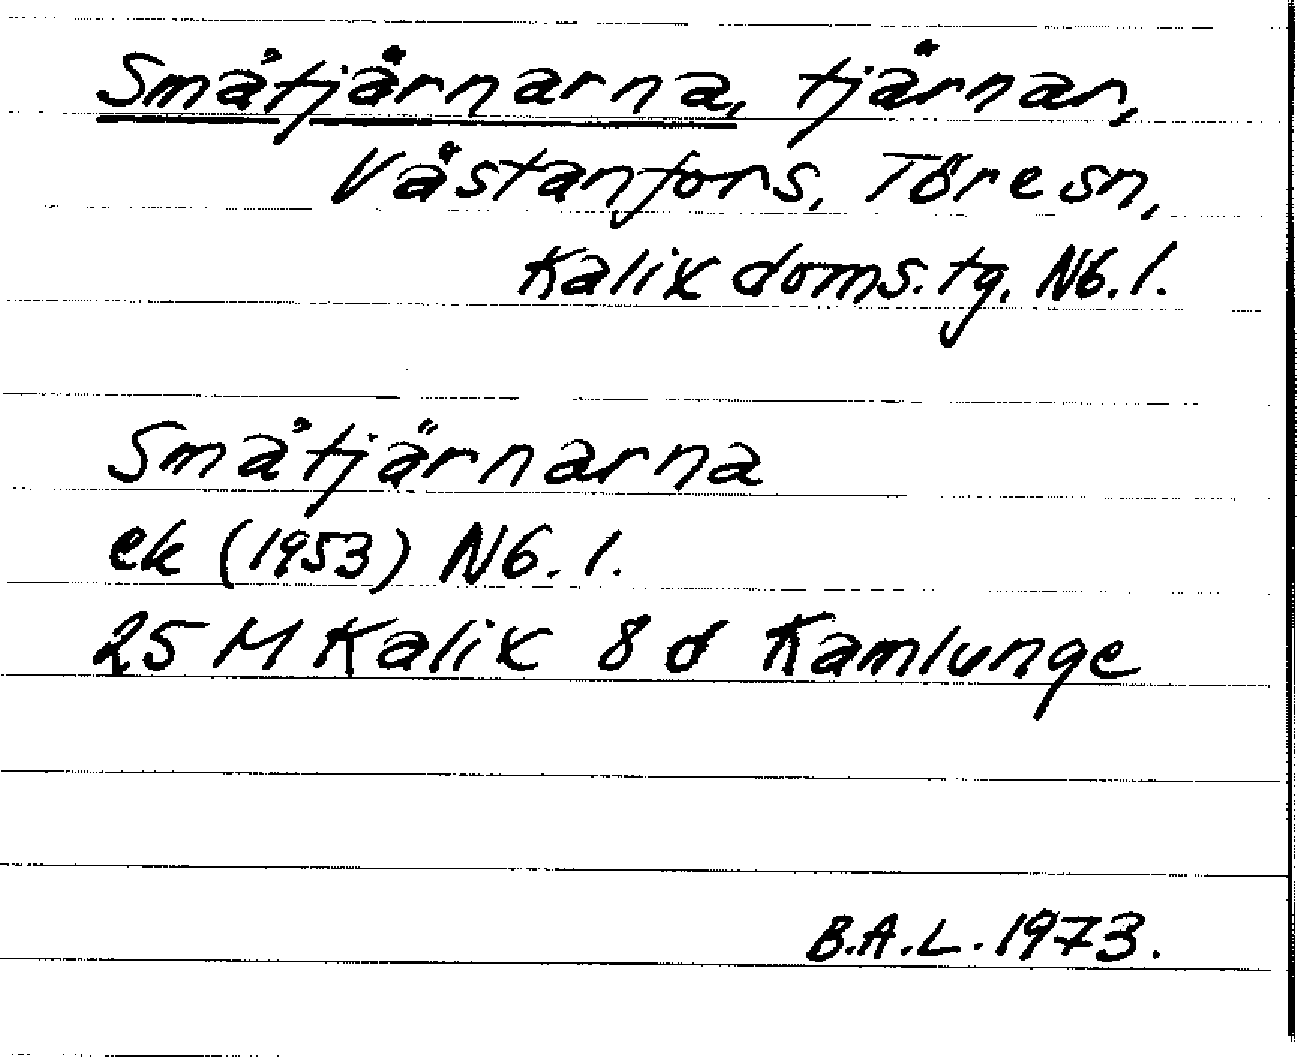 Småtjärnarna, tjärnar,
Västanfors, Töresn,
Kalix doms.tg. Nb.l.
Småtjärnarna
ek (1953) Nb.l.
25 M Kalix 8 d Kamlunge
B.A.L. 1973.